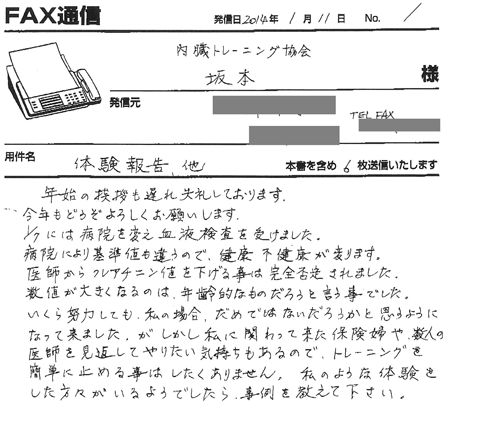 FAX通信 発信日2014年 1月11日 No. 1
内臓トレーニング協会
坂本 様
発信元
TEL FAX
用件名 体験報告、他 本書を含め 6 枚送信いたします
年始の挨拶も遅れ失礼しております。
今年もどうぞよろしくお願いします。
1/7には病院を変え血液検査を受けました。
病院により基準値も違うので、健康不健康が変ります。
医師からクレアチニン値を下げる事は完全否定されました。
数値が大きくなるのは、年齢的なものだろうと言う事でした。
いくら努力しても、私の場合、だめではないだろうかと思うように
なって来ました。がしかし私に関わって来た保険婦や、数人の
医師を見返してやりたい気持ちもあるので、トレーニングを
簡単に止める事はしたくありません。私のような体験を
した方々がいるようでしたら、事例を教えて下さい。